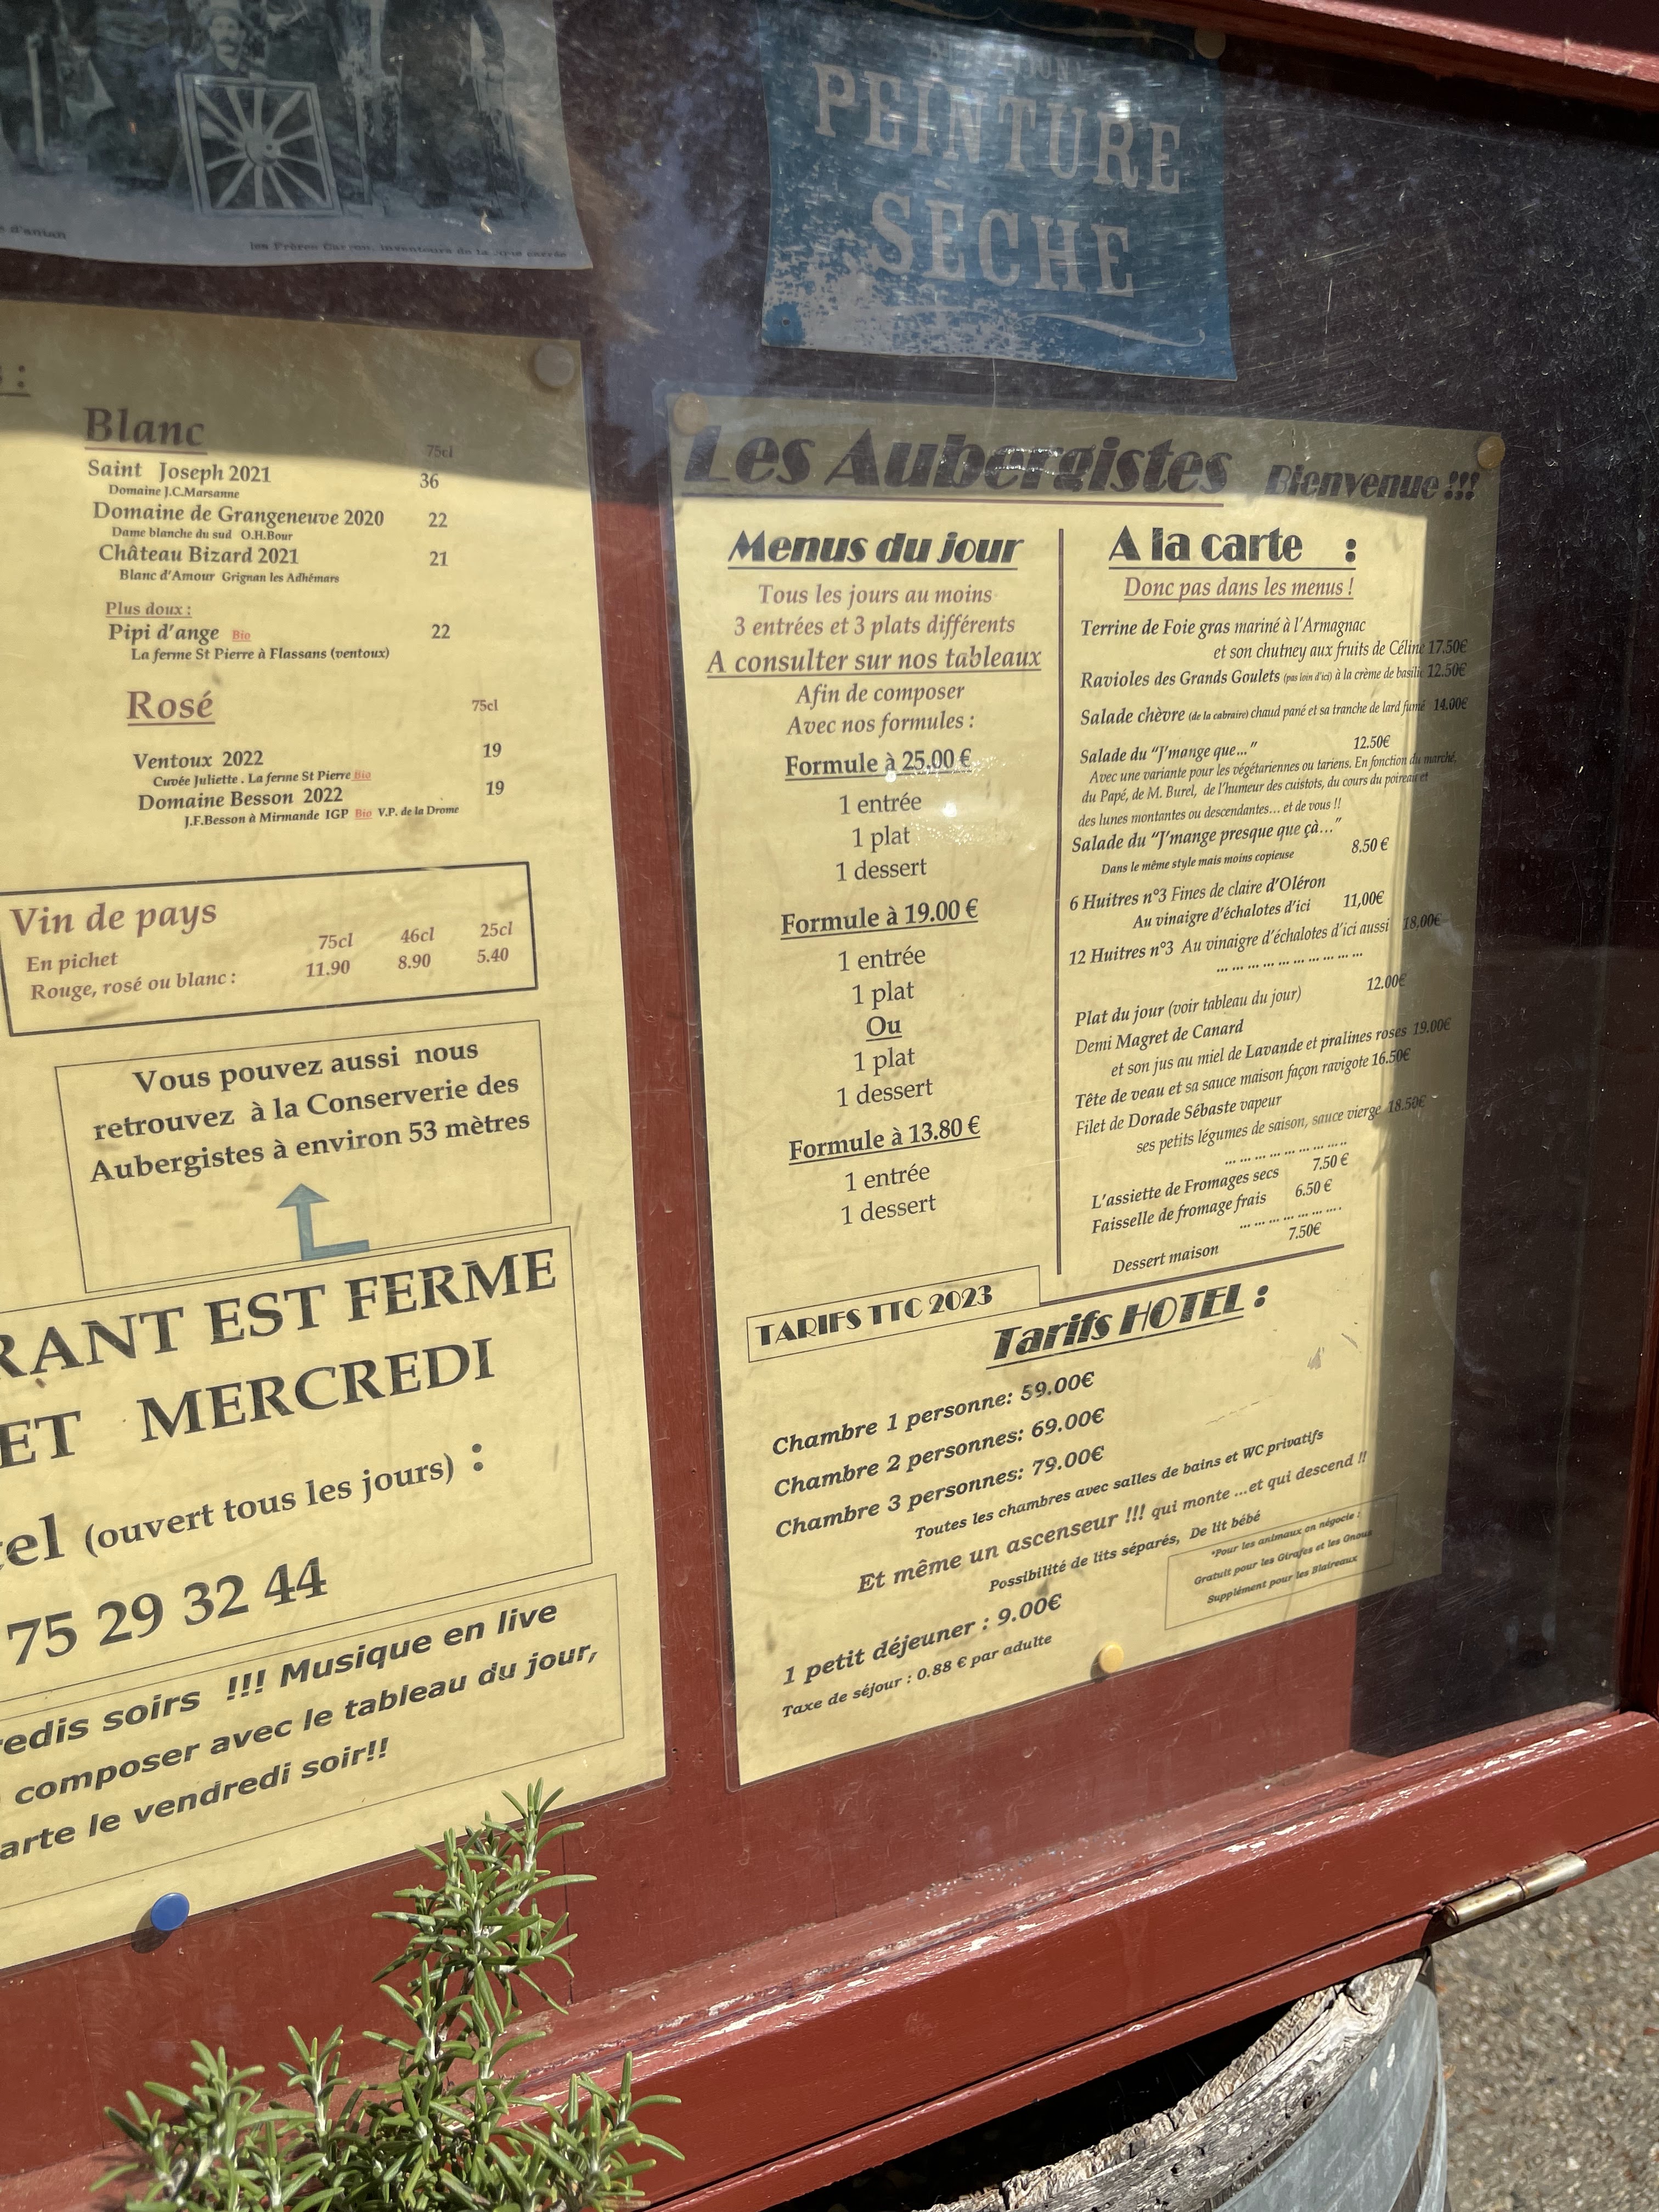 d'antan
les Frères Carron, inventeurs de la roue carrée
PEINTURE
SÈCHE
:
Blanc
75cl
Saint Joseph 2021 36
Domaine J.C.Marsanne
Domaine de Grangeneuve 2020 22
Dame blanche du sud O.H.Bour
Château Bizard 2021 21
Blanc d'Amour Grignan les Adhémars
Plus doux :
Pipi d'ange Bio 22
La ferme St Pierre à Flassans (ventoux)
Rosé
75cl
Ventoux 2022 19
Cuvée Juliette . La ferme St Pierre Bio
Domaine Besson 2022 19
J.F.Besson à Mirmande IGP Bio V.P. de la Drome
Vin de pays
75cl 46cl 25cl
En pichet
Rouge, rosé ou blanc : 11.90 8.90 5.40
Vous pouvez aussi nous
retrouvez à la Conserverie des
Aubergistes à environ 53 mètres
RANT EST FERME
ET MERCREDI
tel (ouvert tous les jours) :
75 29 32 44
redis soirs !!! Musique en live
composer avec le tableau du jour,
arte le vendredi soir!!
Les Aubergistes Bienvenue !!!
Menus du jour
Tous les jours au moins
3 entrées et 3 plats différents
A consulter sur nos tableaux
Afin de composer
Avec nos formules :
Formule à 25.00 €
1 entrée
1 plat
1 dessert
Formule à 19.00 €
1 entrée
1 plat
Ou
1 plat
1 dessert
Formule à 13.80 €
1 entrée
1 dessert
A la carte :
Donc pas dans les menus !
Terrine de Foie gras mariné à l'Armagnac
et son chutney aux fruits de Céline 17.50€
Ravioles des Grands Goulets (pas loin d'ici) à la crème de basilic 12.50€
Salade chèvre (de la cabraire) chaud pané et sa tranche de lard fumé 14.00€
Salade du “J'mange que...” 12.50€
Avec une variante pour les végétariennes ou tariens. En fonction du marché,
du Papé, de M. Burel, de l'humeur des cuistots, du cours du poireau et
des lunes montantes ou descendantes... et de vous !!
Salade du “J'mange presque que çà...”
Dans le même style mais moins copieuse 8.50 €
6 Huitres n°3 Fines de claire d'Oléron
Au vinaigre d'échalotes d'ici 11,00€
12 Huitres n°3 Au vinaigre d'échalotes d'ici aussi 18,00€
... ... ... ... ... ... ... ... ... ...
Plat du jour (voir tableau du jour) 12.00€
Demi Magret de Canard
et son jus au miel de Lavande et pralines roses 19.00€
Tête de veau et sa sauce maison façon ravigote 16.50€
Filet de Dorade Sébaste vapeur
ses petits légumes de saison, sauce vierge 18.50€
... ... ... ... ... ... ... ...
L'assiette de Fromages secs 7.50 €
Faisselle de fromage frais 6.50 €
... ... ... ... ... ... ....
Dessert maison 7.50€
TARIFS TTC 2023
Tarifs HOTEL :
Chambre 1 personne: 59.00€
Chambre 2 personnes: 69.00€
Chambre 3 personnes: 79.00€
Toutes les chambres avec salles de bains et WC privatifs
Et même un ascenseur !!! qui monte ...et qui descend !!
Possibilité de lits séparés, De lit bébé
1 petit déjeuner : 9.00€
Taxe de séjour : 0.88 € par adulte
*Pour les animaux on négocie :
Gratuit pour les Girafes et les Gnous
Supplément pour les Blaireaux